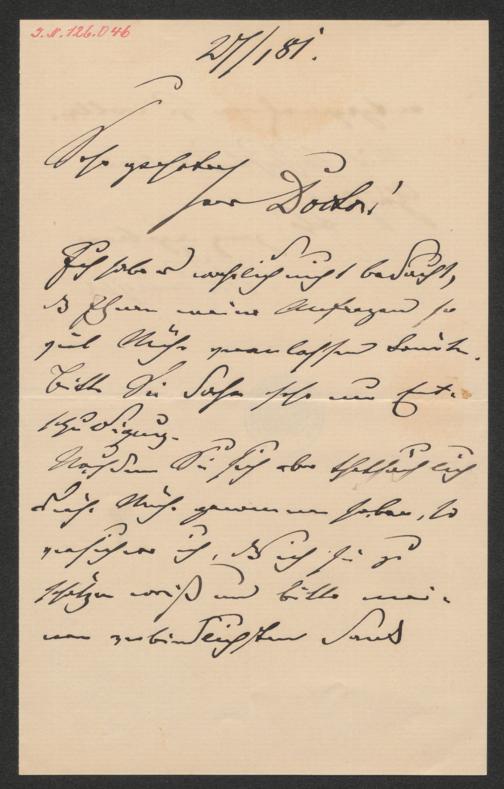 J.N. 126.046
27/1 81.
Sehr geehrter
Herr Doctor!
Ich habe es wahrlich nicht bedacht,
daß Ihnen meine Anfragen so
viel Mühe veranlassen könnte.
Bitte Sie daher sehr um Ent-
schuldigung.
Nachdem Sie sich aber thatsächlich
diese Mühe genommen haben, so
versichere ich, daß ich sie zu
schätzen weiß und bitte mei-
nen verbindlichsten Dank